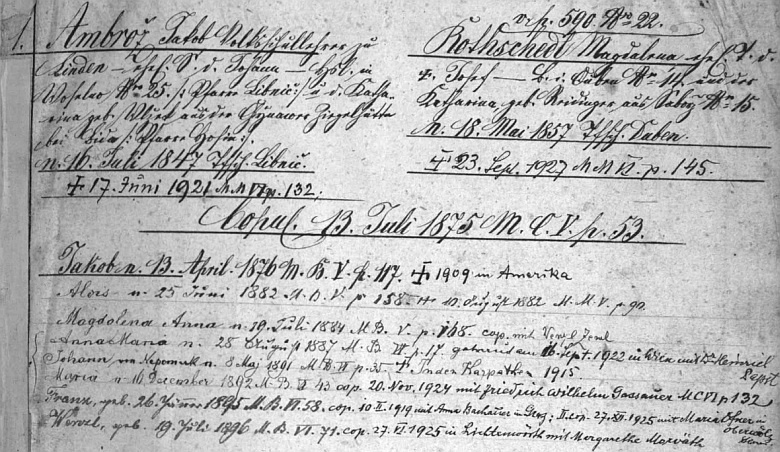 vid. p. 590. No 22.
1. Ambrož Jakob Volksschullehrer zu
Linden – ehel. S. d. Johann – Hsl. in
Woselno No 25. (Pfarre Libnič) u. d. Katha-
rina geb. aus der Gynauer Ziegelhütte
bei (Pfarre Hosin).
n. 16. Juli 1847 Tfsch. Libnič.
+ 17. Juni 1921 M M VI p. 132;
Rothschedl Magdalena ehel. T. d.
+ Josef – B. i. Duben No 14, und der
Katharina geb. Neidinger aus Sabor No 15.
n. 18. Mai 1857 Tfsch. Duben.
+ 23. Sept. 1927 M M VI. p. 145.
Copul. 13. Juli 1875 M. C. V. p. 53.
Jakob n. 13. April. 1876 M. B. V. p. 117. + 1909 in Amerika
Alois n. 25 Juni 1882 M. B. V. p 158. + 10 August 1882 M. M. V. p. 90
Magdolena Anna n. 19. Juli 1884 M. B. V. p. 168. cop. mit
Anna Maria n. 28 August 1887 M. B VI. p. 17. getraut am 16. Sept. 1922 in Wien mit Dr Heinrich
Johann von Nepomuk n. 8 Mai 1891 M. B. VI p. 35. + In den Karpathen 1915
Maria n. 16 December 1892 M. B. VI 43 cop. 20. Nov. 1924 mit Friedrich Wilhelm Gassauer M C VI p 132
Franz, geb. 26. Jänner 1895 M. B. VI. 58. cop. 10. II. 1919 mit Anna Bachauer in Steg; II. cop. 27. XII. 1925 mit Maria Ofner in
Wenzl, geb. 19. Juli 1896 M. B. VI. 71. cop. 27. VI 1925 in Lichtenwörth mit Margarethe Horváth